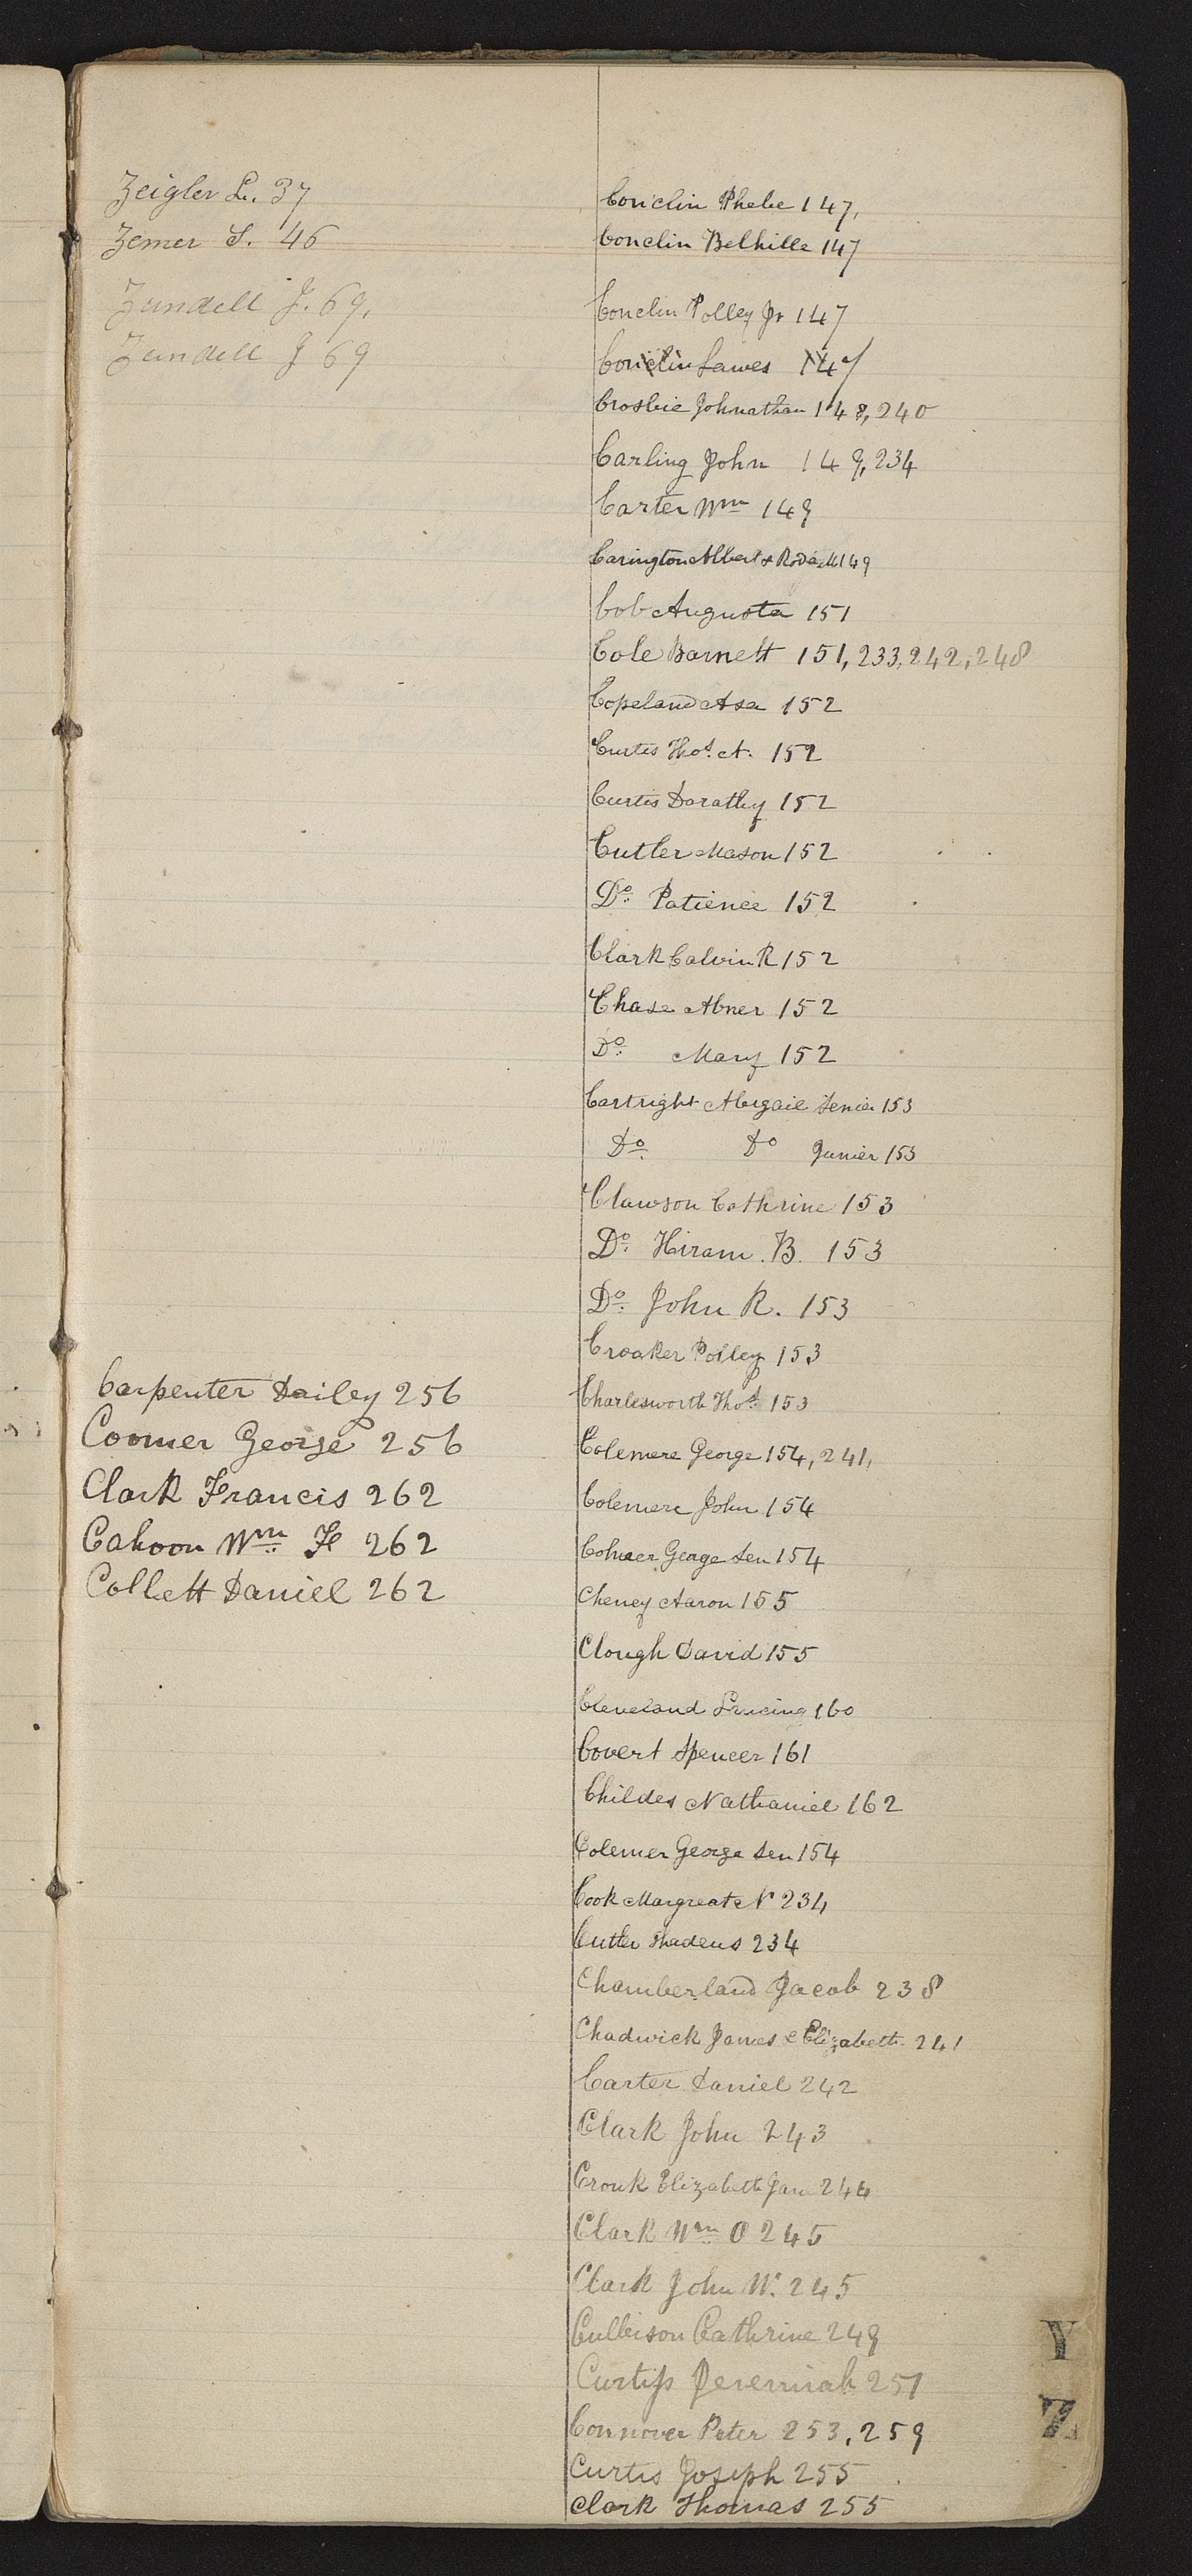 Zeigler L. 37
Zemer S. 46
Zundell J. 69,
Zundell J 69
Carpenter Dailey 256
Coomer George 256
Clark Francis 262
Cahoon Wm H 262
Collett Daniel 262
Conclin Phebe 147,
Conclin Belhille 147
Conclin Polley Jr 147
Conclin Lawes 147
Crosbie Johnathan 148, 240
Carling John 149, 234
Carter Wm 149
Carington Albert & 149
Cob Augusta 151
Cole Barnett 151, 233, 242, 248
Copeland Asa 152
Curtis Thos. A. 152
Curtis Dorathy 152
Cutler Mason 152
Do. Patience 152
Clark Calvin R 152
Chase Abner 152
Do. Mary 152
Cartright Abigail Senier 153
Do. Do Junier 153
Clawson Cathrine 153
Do. Hiram. B. 153
Do. John R. 153
Croaker Polley 153
Charlesworth Thos. 153
Colemere George 154, 241,
Colemere John 154
George Sen 154
Cheney Aaron 155
Clough David 155
Cleveland 160
Covert Spencer 161
Childes Nathaniel 162
Colemer George Sen 154
Cook Margreat N 234
Cutler Thadeus 234
Chamberland Jacob 238
Chadwick James & Elizabeth 241
Carter Daniel 242
Clark John 243
Cronk Elizabeth Jane 244
Clark Wm O 245
Clark John W. 245
Culbison Cathrine 249
Curtiss Jeremiah 251
Connover Peter 253, 259
Curtis Joseph 255
Clark Thomas 255
Y
Z